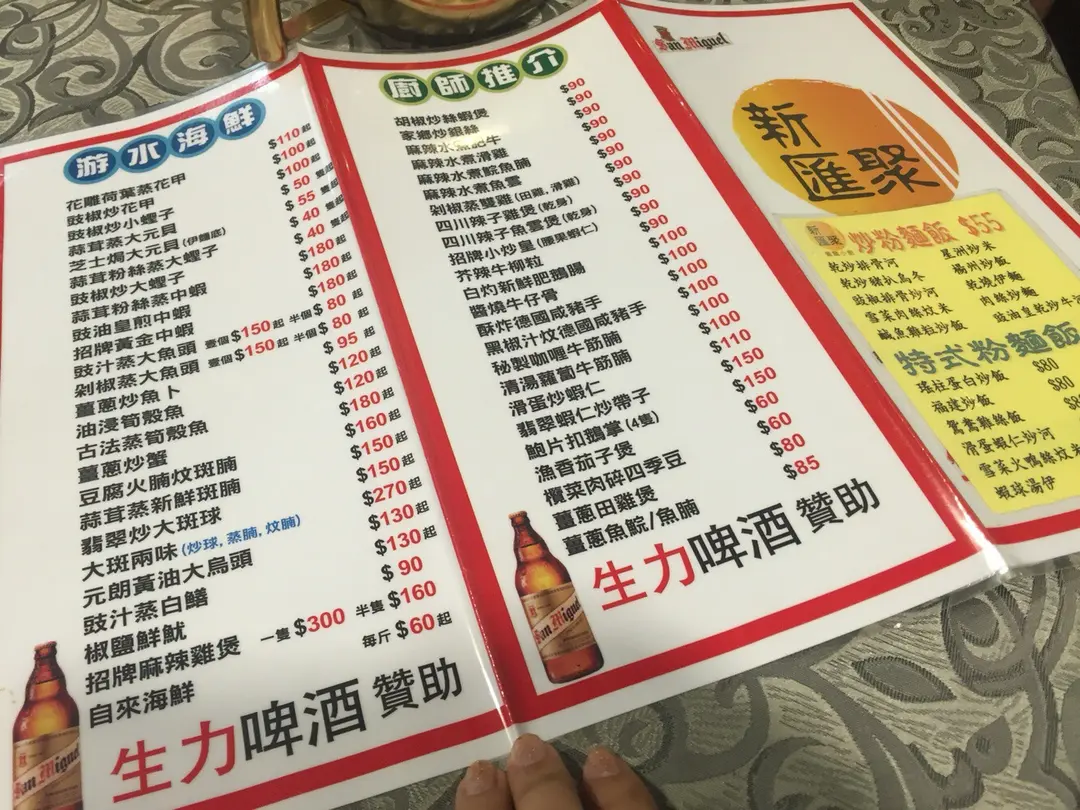 游水海鮮
花雕荷葉蒸花甲 $110起
豉椒炒花甲 $100起
豉椒炒小蟶子 $100起
蒜茸蒸大元貝 $50隻起
芝士焗大元貝(伊麵底) $55隻起
蒜茸粉絲蒸大蟶子 $40隻起
豉椒炒大蟶子 $40隻起
蒜茸粉絲蒸中蝦 $180起
豉油皇煎中蝦 $180起
招牌黃金中蝦 $180起
豉汁蒸大魚頭 壹個$150起 半個$80起
剁椒蒸大魚頭 壹個$150起 半個$80起
薑蔥炒魚卜 $95起
油浸筍殼魚 $120起
古法蒸筍殼魚 $120起
薑蔥炒蟹 $180起
豆腐火腩炆斑腩 $160起
蒜茸蒸新鮮斑腩 $150起
翡翠炒大斑球 $150起
大斑兩味(炒球,蒸腩,炆腩) $270起
元朗黃油大烏頭 $130起
豉汁蒸白鱔 $130起
椒鹽鮮魷 $90
招牌麻辣雞煲 一隻$300 半隻$160
自來海鮮 每斤$60起
生力啤酒 贊助
San Miguel
廚師推介
胡椒炒絲蝦煲
家鄉炒銀絲
麻辣水煮肥牛
麻辣水煮滑雞
麻辣水煮鯇魚腩
麻辣水煮魚雲
剁椒蒸雙雞(田雞,滑雞)
四川辣子雞煲(乾身)
四川辣子魚雲煲(乾身)
招牌小炒皇(腰果蝦仁)
芥辣牛柳粒
白灼新鮮肥鵝腸
醬燒牛仔骨
酥炸德國咸豬手
黑椒汁炆德國咸豬手
秘製咖喱牛筋腩
清湯蘿蔔牛筋腩
滑蛋炒蝦仁
翡翠蝦仁炒帶子
鮑片扣鵝掌(4隻)
漁香茄子煲
欖菜肉碎四季豆
薑蔥田雞煲
薑蔥魚鯇/魚腩
$90
$90
$90
$90
$90
$90
$90
$90
$100
$100
$100
$100
$100
$110
$150
$150
$60
$60
$80
$85
生力啤酒 贊助
San Miguel
San Miguel
新匯聚
新匯聚
炒粉麵飯 $55
乾炒排骨河
乾炒豬扒烏冬
豉椒排骨炒河
雪菜肉絲炆米
鹹魚雞粒炒飯
星洲炒米
楊州炒飯
乾燒伊麵
肉絲炒麵
豉油皇乾炒牛河
特式粉麵飯
瑤柱蛋白炒飯 $80
福建炒飯 $80
鴛鴦雞絲飯
滑蛋蝦仁炒河
雪菜火鴨絲炆米
蝦球湯伊